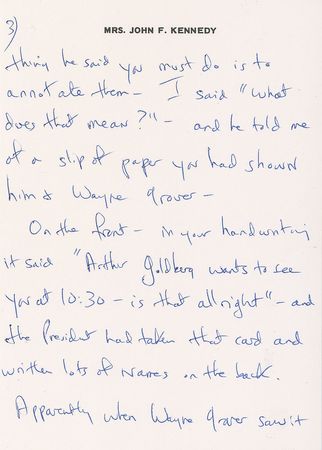 3)
MRS. JOHN F. KENNEDY
thing he said you must do is to
annotate them - I said "what
does that mean?" - and he told me
of a slip of paper you had shown
him & Wayne Grover -
On the front - in your handwriting
it said "Arthur Goldberg wants to see
you at 10:30 - is that all right" - and
the President had taken that card and
written lots of names on the back.
Apparently when Wayne Grover saw it